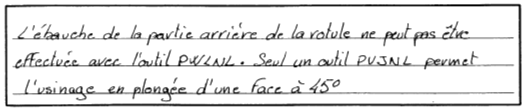 L'ébauche de la partie arrière de la rotule ne peut pas être
effectuée avec l'outil PWLNL. Seul un outil PVJNL permet
l'usinage en plongée d'une face à 45°